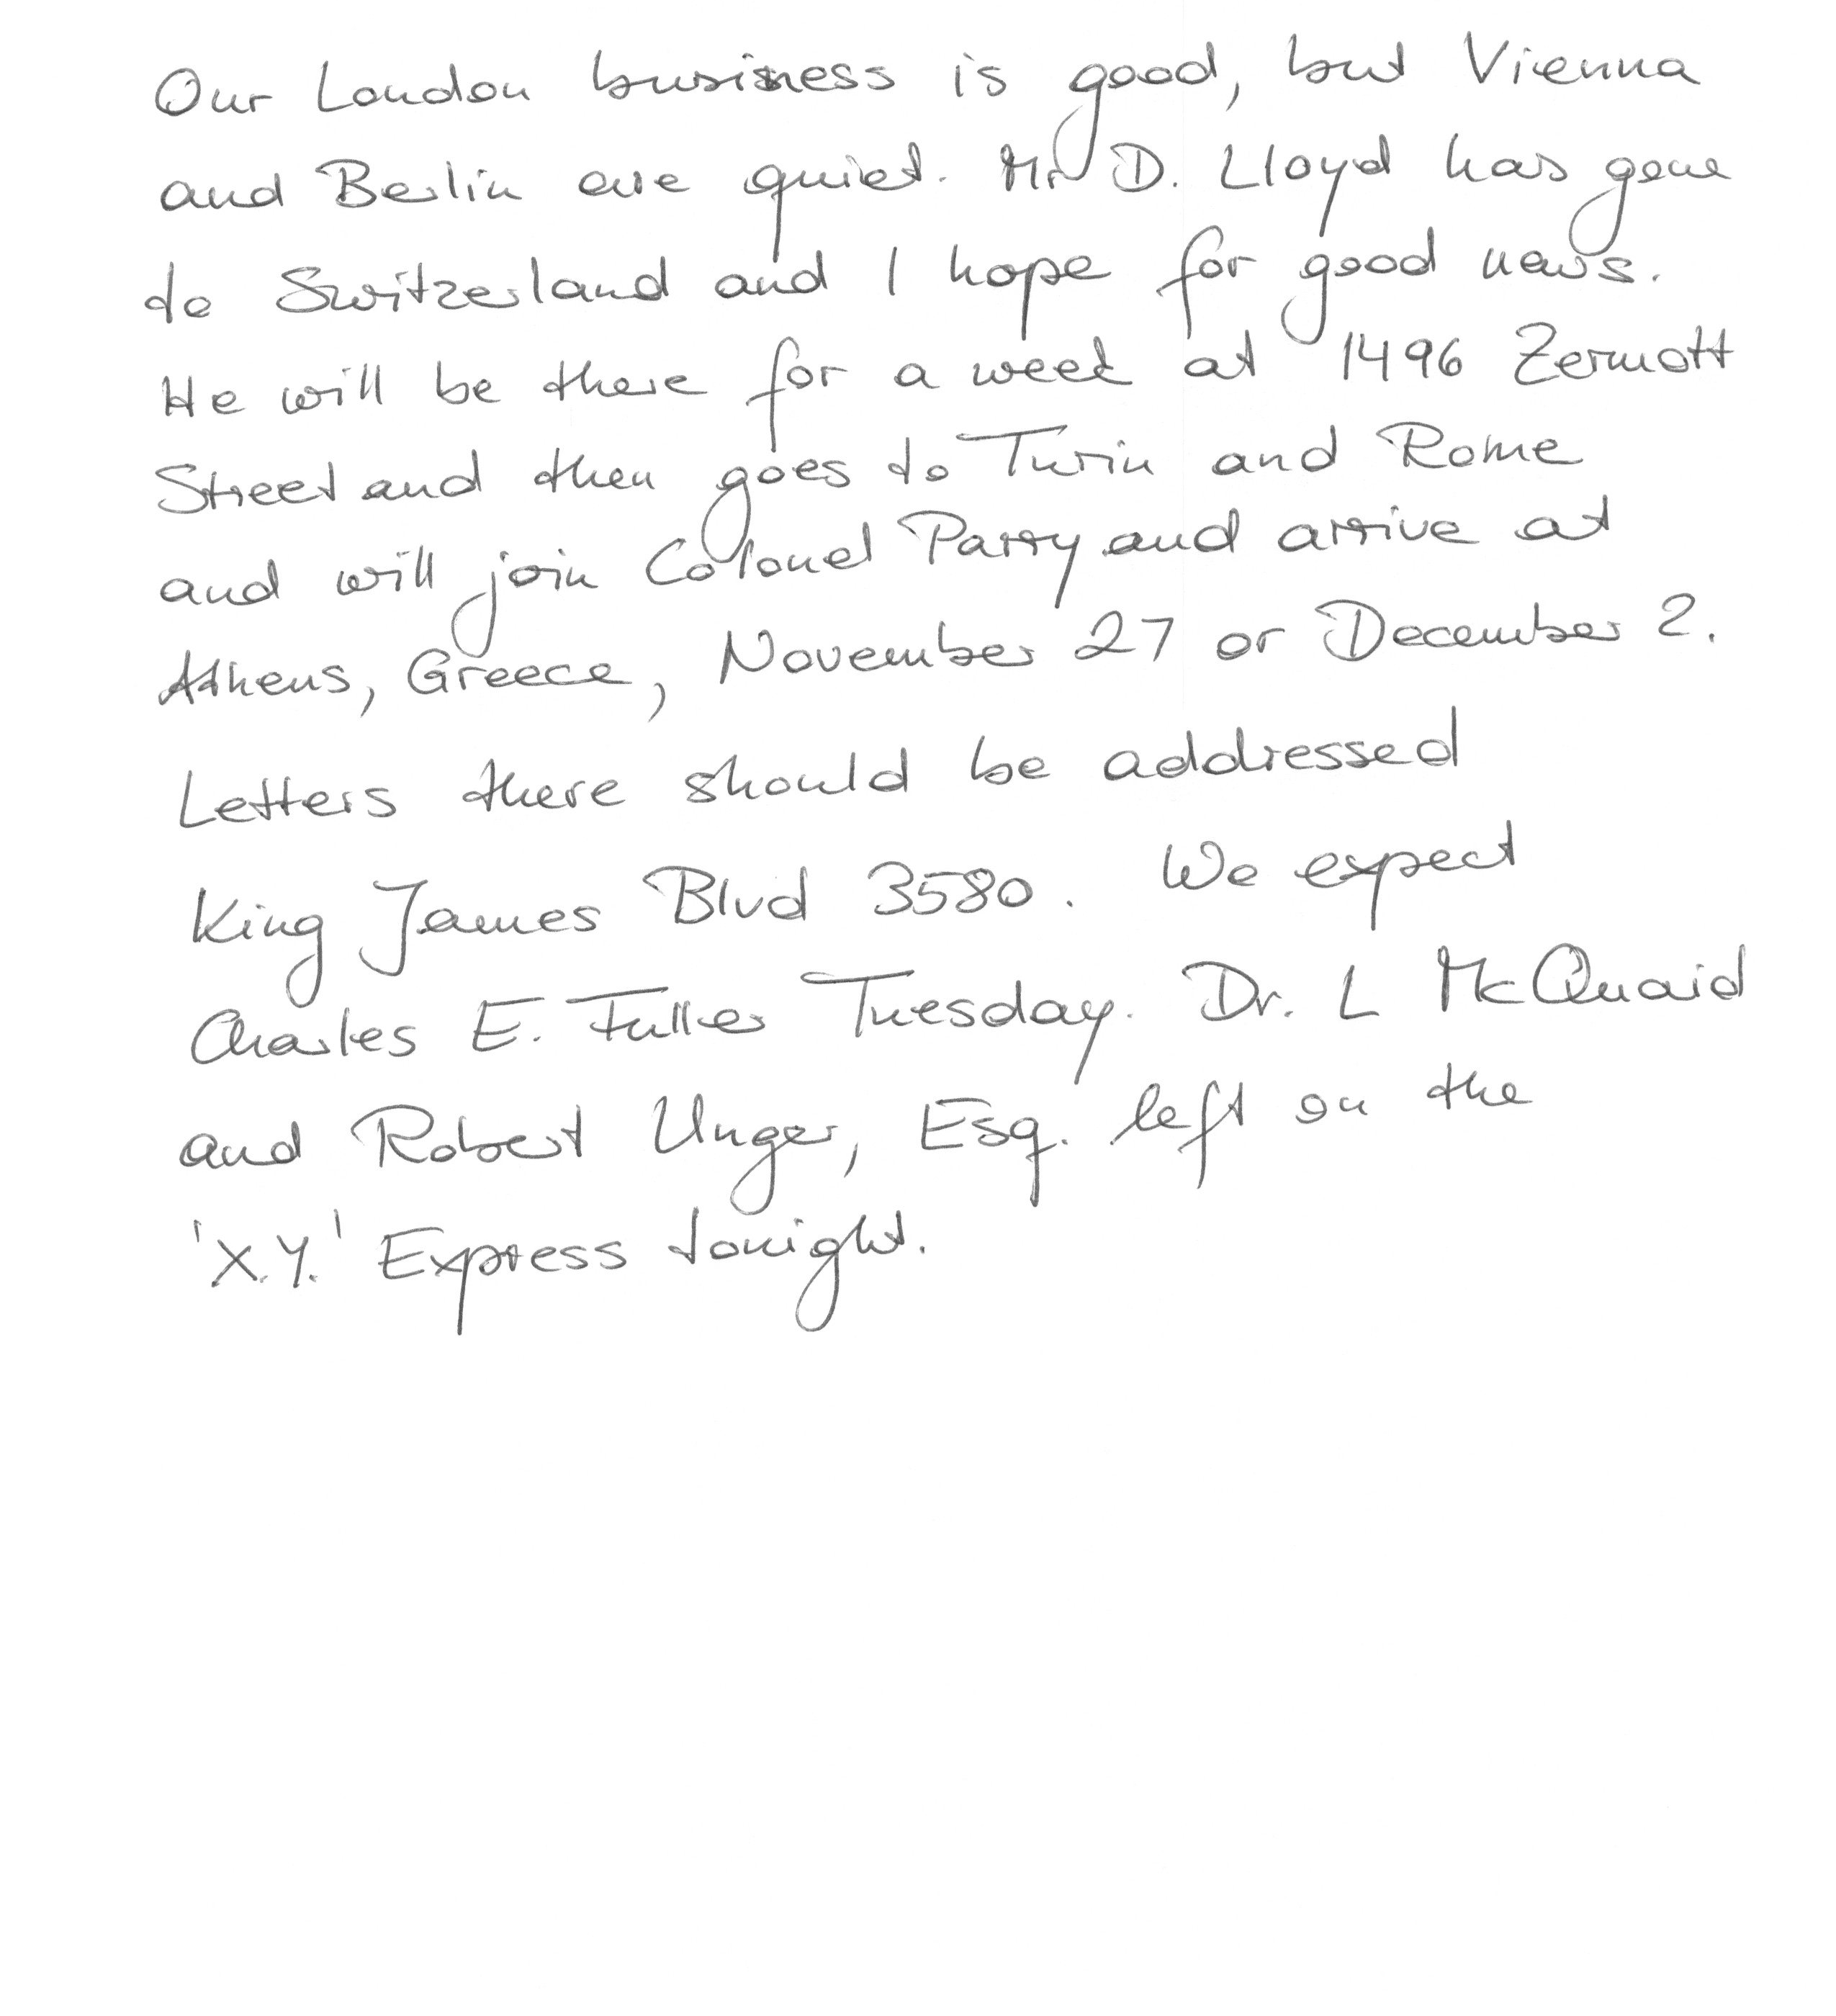 Our London business is good, but Vienna
and Berlin are quiet. Mr D. Lloyd has gone
to Switzerland and I hope for good news.
He will be there for a week at 1496 Zermott
Street and then goes to Turin and Rome
and will join Colonel Parry and arrive at
Athens, Greece, November 27 or December 2.
Letters there should be addressed
King James Blvd 3580. We expect
Charles E. Fuller Tuesday. Dr. L McQuaid
and Robert Unger, Esq. left on the
'X.Y.' Express tonight.